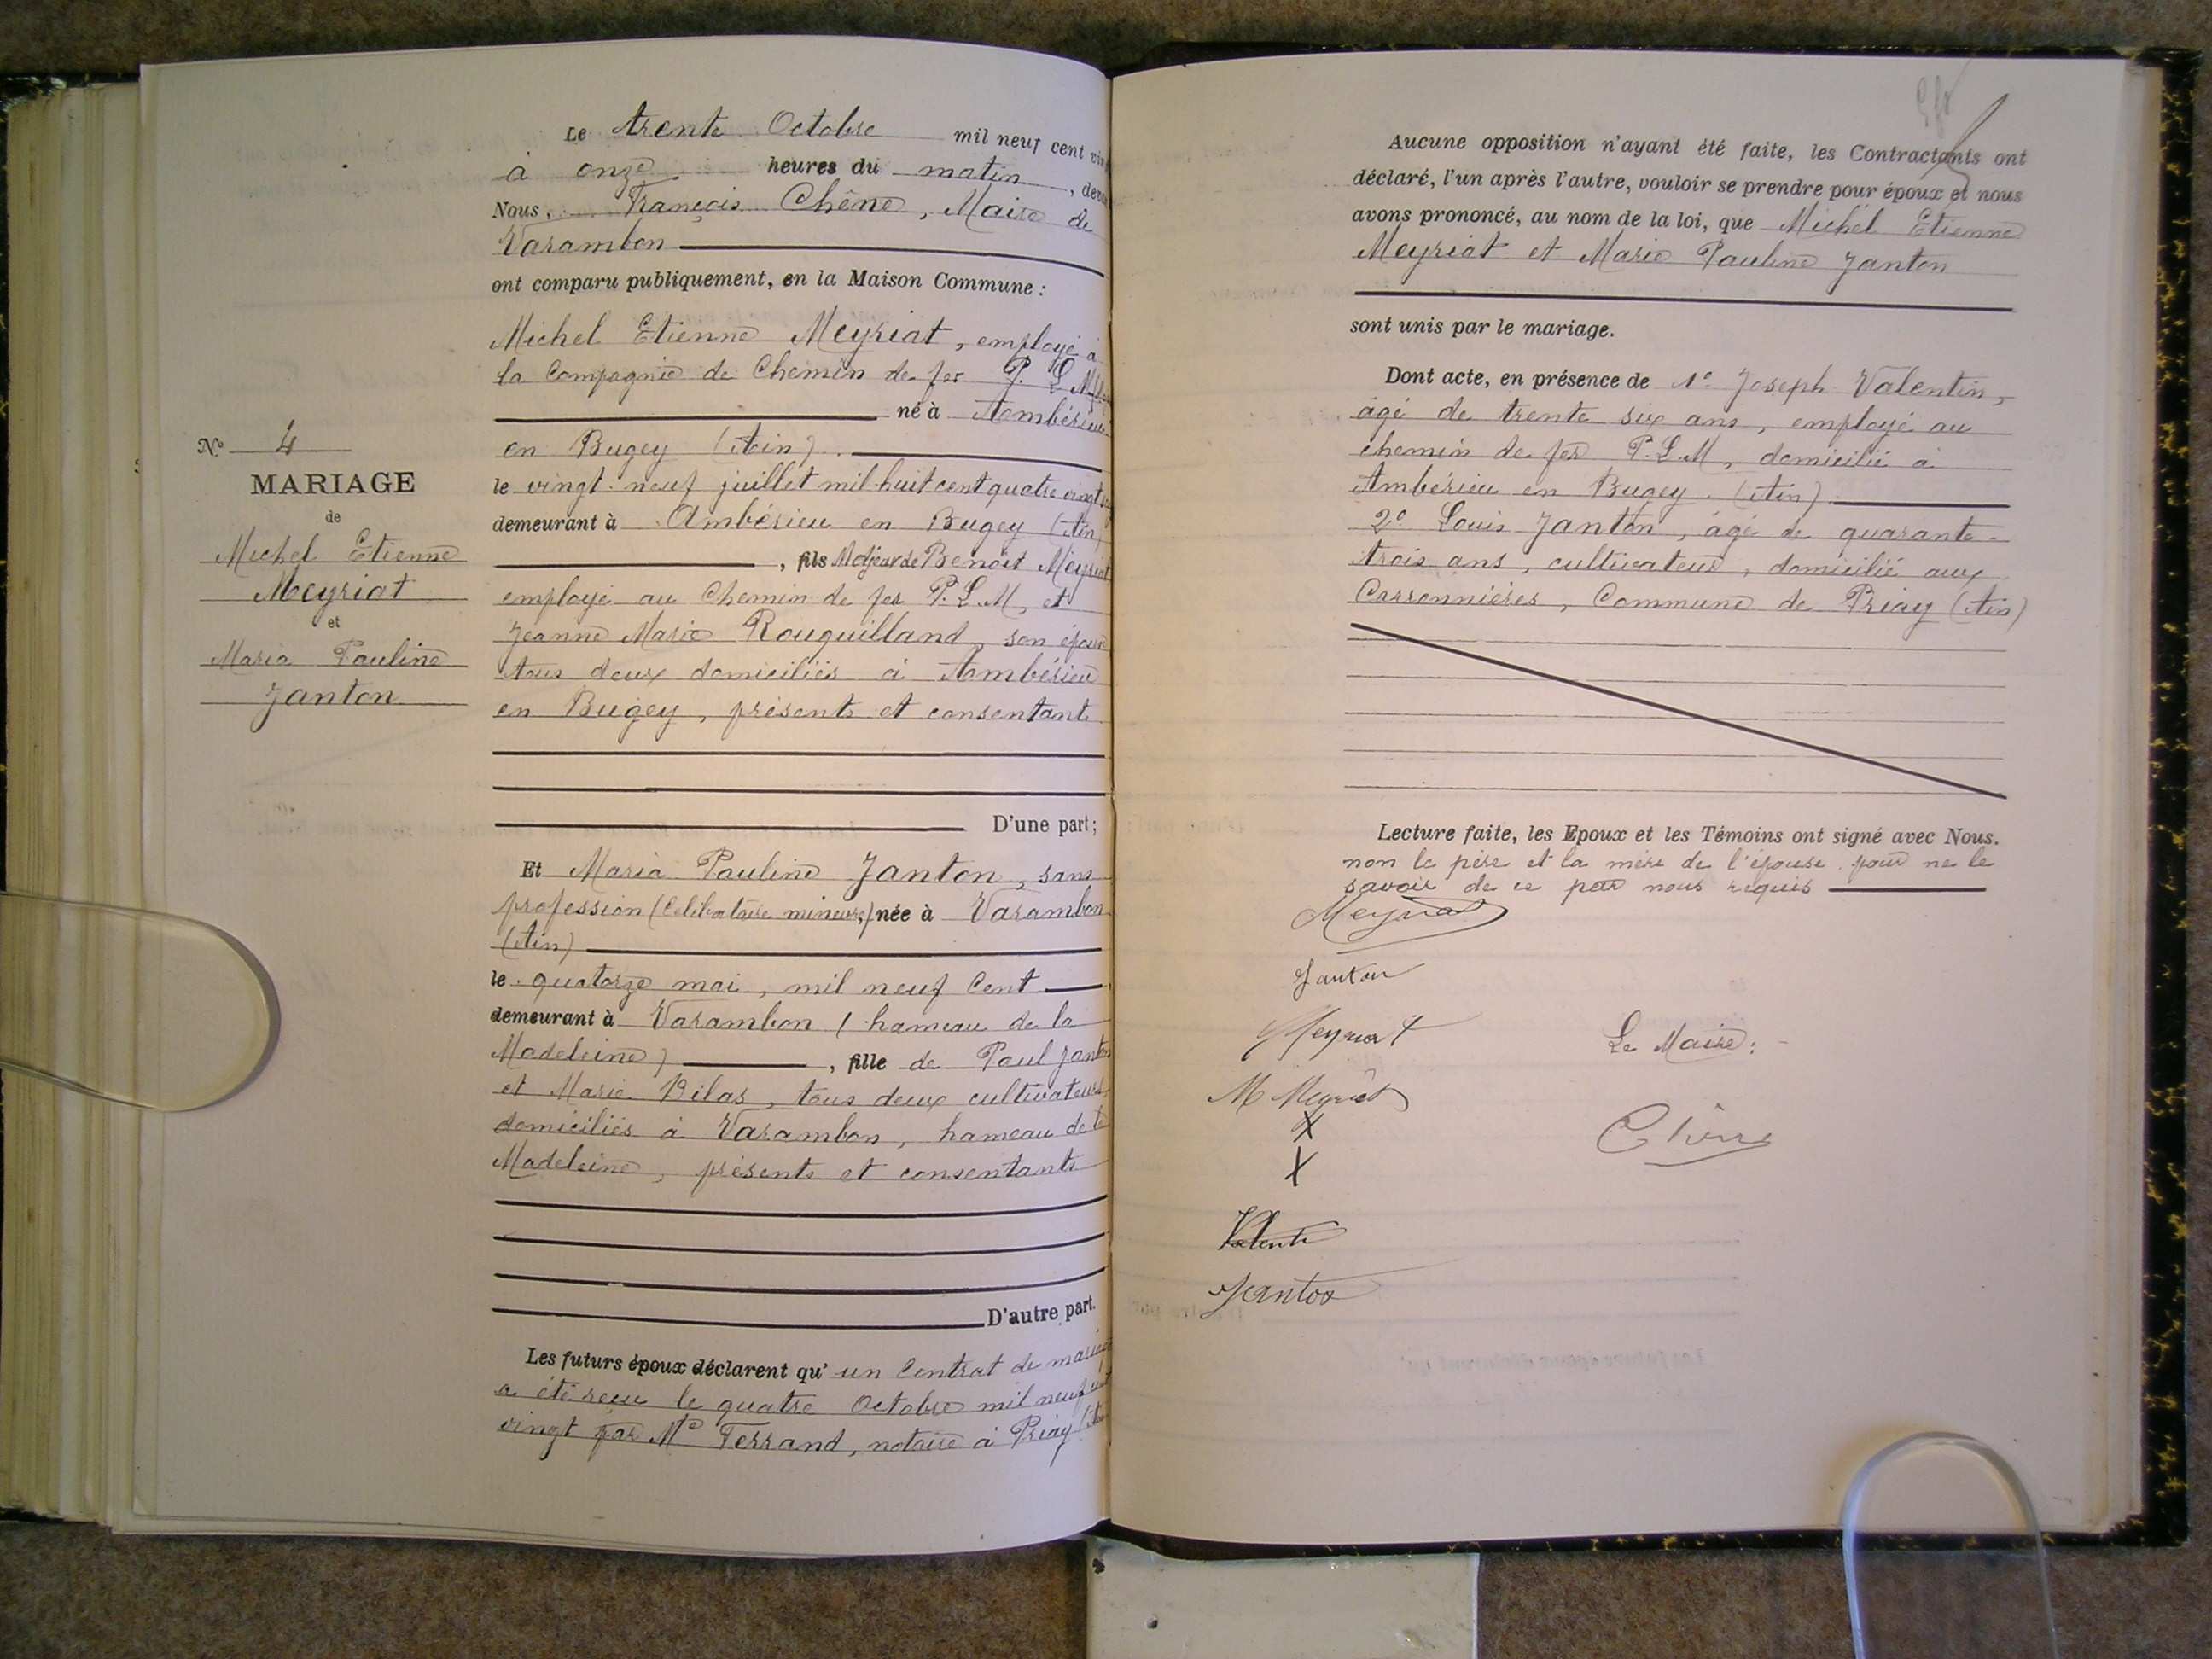 N° 4
MARIAGE
de
Michel Etienne
Meyriat
et
Maria Pauline
Janton
Le trente Octobre mil neuf cent
à onze heures du matin
Nous, François Chêne, Maire de
Varambon
ont comparu publiquement, en la Maison Commune :
Michel Etienne Meyriat, employé à
la Compagnie de Chemin de fer P. L. M.
né à Ambérieu
en Bugey (Ain).
le vingt neuf juillet mil huit cent quatre vingt
demeurant à Ambérieu en Bugey (Ain)
, fils Majeur de Benoît Meyriat
employé au Chemin de fer P. L. M, et
Jeanne Marie Rouquilland, son épouse
tous deux domiciliés à Ambérieu
en Bugey, présents et consentants
D'une part;
Et Maria Pauline Janton, sans
profession (Célibataire mineure,) née à Varambon
(Ain)
le quatorze mai, mil neuf Cent
demeurant à Varambon (hameau de la
Madeleine) , fille de Paul Janton
et Marie Bilas, tous deux cultivateurs
domiciliés à Varambon, hameau de la
Madeleine, présents et consentants
D'autre part.
Les futurs époux déclarent qu'un Contrat de mariage
a été reçu le quatre Octobre mil neuf cent
vingt par Me Ferrand, notaire à Priay
Aucune opposition n'ayant été faite, les Contractants ont
déclaré, l'un après l'autre, vouloir se prendre pour époux et nous
avons prononcé, au nom de la loi, que Michel Etienne
Meyriat et Marie Pauline Janton
sont unis par le mariage.
Dont acte, en présence de 1° Joseph Valentin,
âgé de trente six ans, employé au
chemin de fer P. L. M, domicilié à
Ambérieu en Bugey. (Ain)
2° Louis Janton, âgé de quarante-
trois ans, cultivateur, domicilié aux
Carronnières, Commune de Priay (Ain)
Lecture faite, les Epoux et les Témoins ont signé avec Nous.
non le père et la mère de l'épouse pour ne le
savoir de ce par nous requis
Meyriat
Janton
Meyriat
M Meyriat
X
X
Valentin
Janton
Le Maire :
Chêne